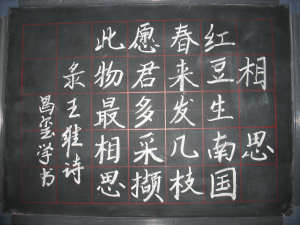 相思
红豆生南国
春来发几枝
愿君多采撷
此物最相思
录王维诗
学书